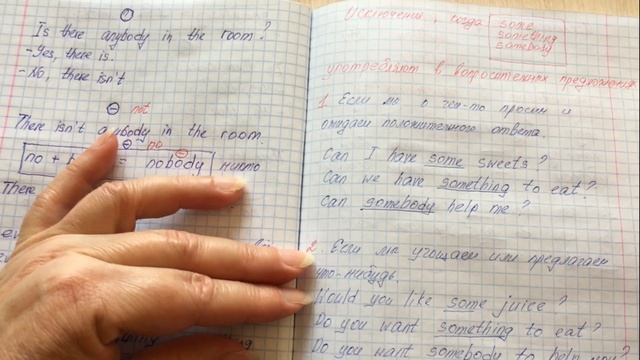 ?
Is there anybody in the room?
- Yes, there is.
- No, there isn't
⊖ not
There isn't anybody in the room.
⊕ no ⊖
no + = nobody никто
There
Исключения, когда some
something
somebody
употребляют в вопросительных предложениях
1. Если мы о чем-то просим и
ожидаем положительного ответа.
Can I have some sweets?
Can we have something to eat?
Can somebody help me?
2. Если мы угощаем или предлагаем
что-нибудь.
Would you like some juice?
Do you want something to eat?
Do you want somebody to help you?